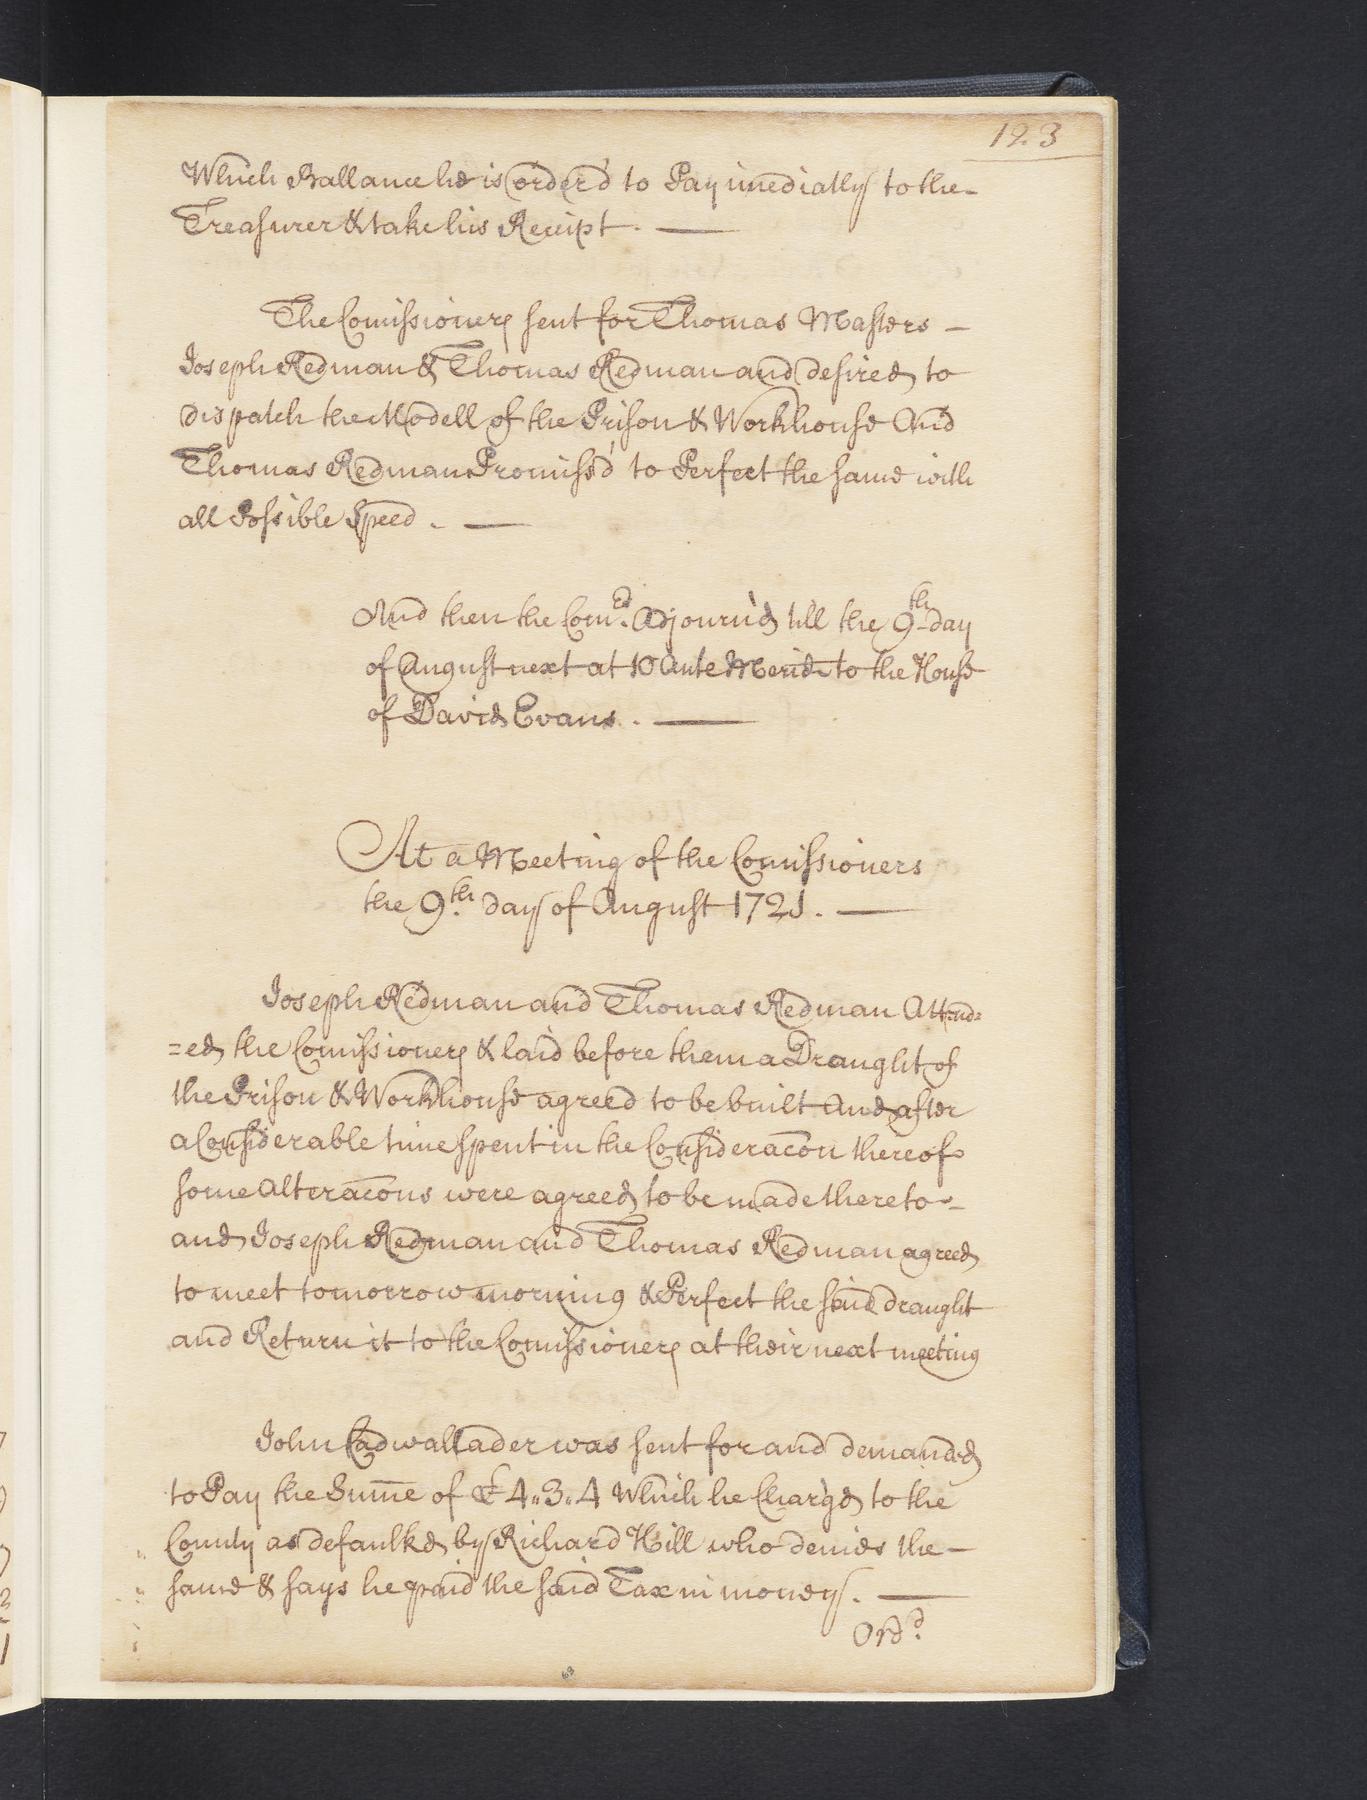 123
Which Ballance he is order'd to Pay imediatly to the
Treasurer & take his Receipt. —
The Comissioners sent for Thomas Masters —
Joseph Redman & Thomas Redman and desired to
dispatch the Modell of the Prison & Workhouse And
Thomas Redman Promiss'd to Perfect the same with
all Possible Speed. —
And then the Com.rs Adjourn'd till the 9th day
of August next at 10 Ante Merid. to the House
of David Evans. —
At a Meeting of the Comissioners
the 9.th day of August 1721. —
Joseph Redman and Thomas Redman Attend=
=ed the Comissioners & laid before them a Draught of
the Prison & Workhouse agreed to be built And after
a Considerable time spent in the Consideracon thereof
some Alteracons were agreed to be made thereto —
and Joseph Redman and Thomas Redman agreed
to meet tomorrow morning & Perfect the said draught
and Return it to the Comissioners at their next meeting
John Cadwallader was sent for and demanded
to Pay the Sume of £4„3„4 Which he Charg'd to the
County as defaulked by Richard Hill who denies the —
same & says he paid the said Tax in money. —
Ord.d